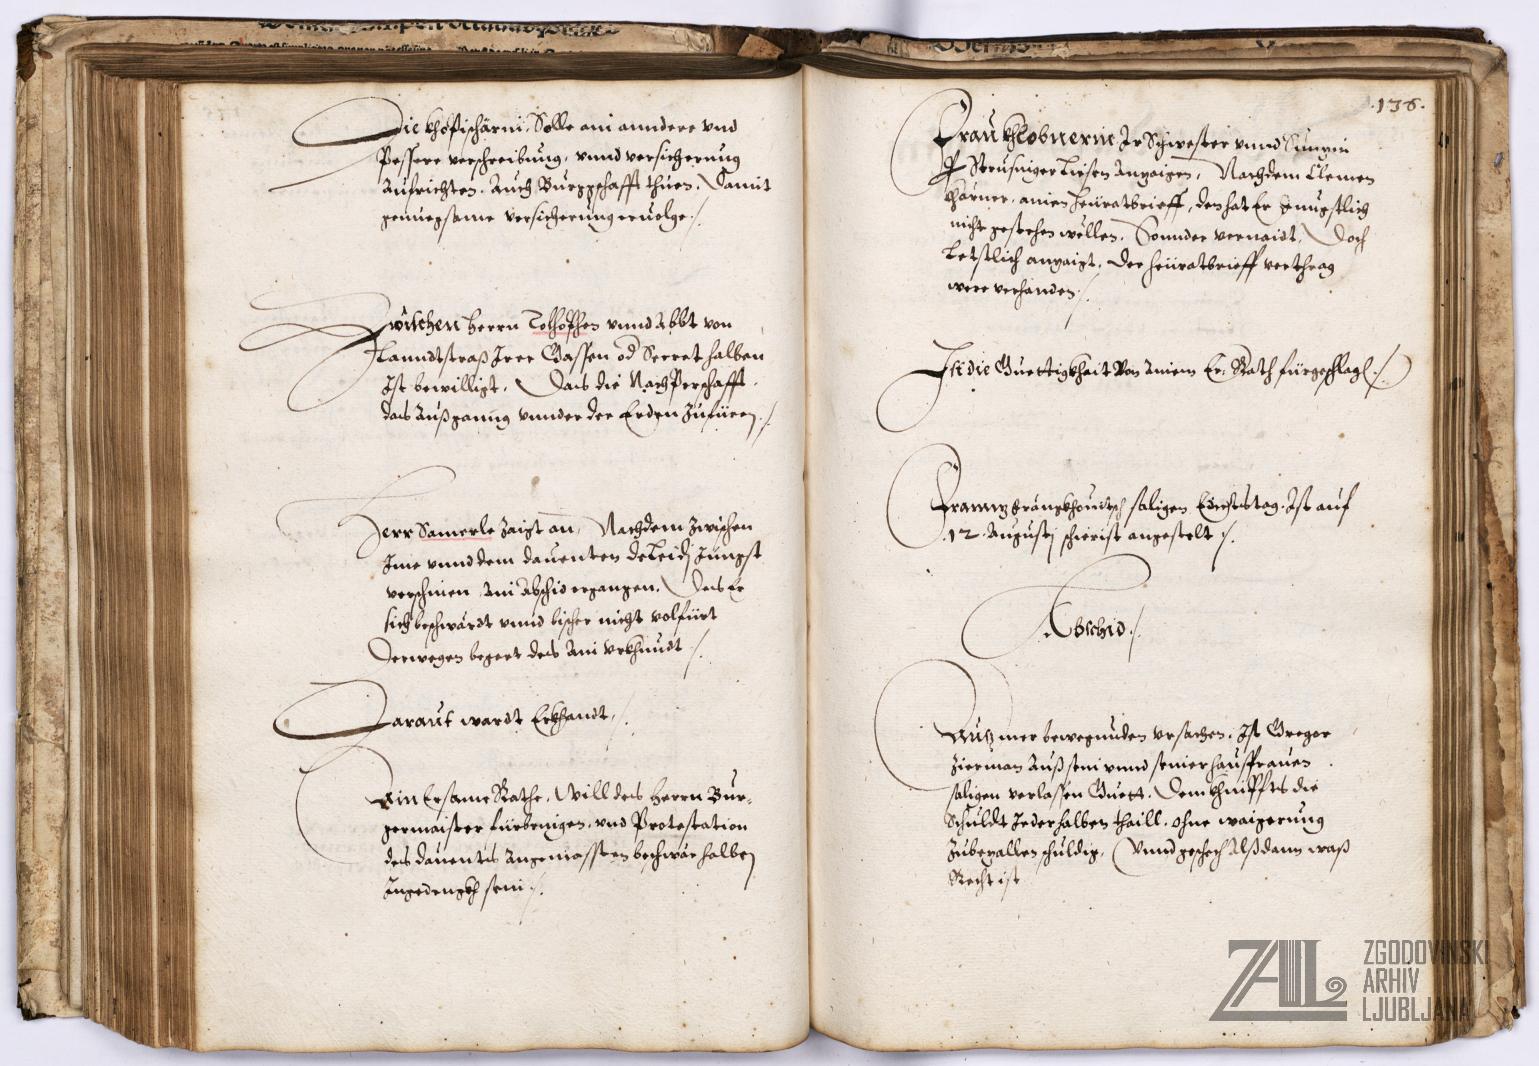 Die khofischärni. Solle ain anndere vnd
Pessere verschreibung, vnnd versicherung
Aufrichten. Auch Burggschafft thuen. Damit
genuegsame versicherung eruolge ./.
Zwischen Herrn Tolhopffen vnnd Abbt von
Lanndtstraß Irer Gassen od Secret halben
Ist bewilligt. Das die Nachperschafft
das Außganng vnnder der Erden Zufüren ./.
Herr Samerle Zaigt an, Nachdem Zwischen
Ime vnnd dem dauenten deLeidj Jungst
verschinen Ain Abschid ergangen. Das Er
sich beschwärdt vnnd bisher nicht volfürt
Derwegen begert das Ain vrkhundt ./.
Darauf wardt Erkhandt ./.
Ain Ersame Rathe. Will des Herrn Bur-
germaister fürbringen, vnd Protestation
des dauentis Angemassten beschwär halben
Ingedengkh sein ./.
.136.
Frau Khlobnerin Ir Schwester vnnd
Anzaigen, Nachdem Clemen
Khärner, ainen Heüratbrieff, den hat Er
nicht gestehen wellen. Sonnder vernaidt, Doch
Letstlich anzaigt, Der Heüratbrieff verthrag
were verhanden ./.
Ist die Guettigkhait Von Ainem Er: Rath fürgeschlag ./.
säligen Edictstag. Ist auf
.12. Augustj schierist angestelt ./.
Abschid ./.
Auß mer bewegnuden vrsachen. Ist Gregor
Zierman Auß sein vnnd seiner Hausfrauen
säligen verlassen Guett. Dem khnifftis die
Schuldt Jederhalben thaill, ohne waigerung
Zubezallen schuldig, Vnnd geschech Alßdann waß
Recht ist
ZAL
ZGODOVINSKI
ARHIV
LJUBLJANA